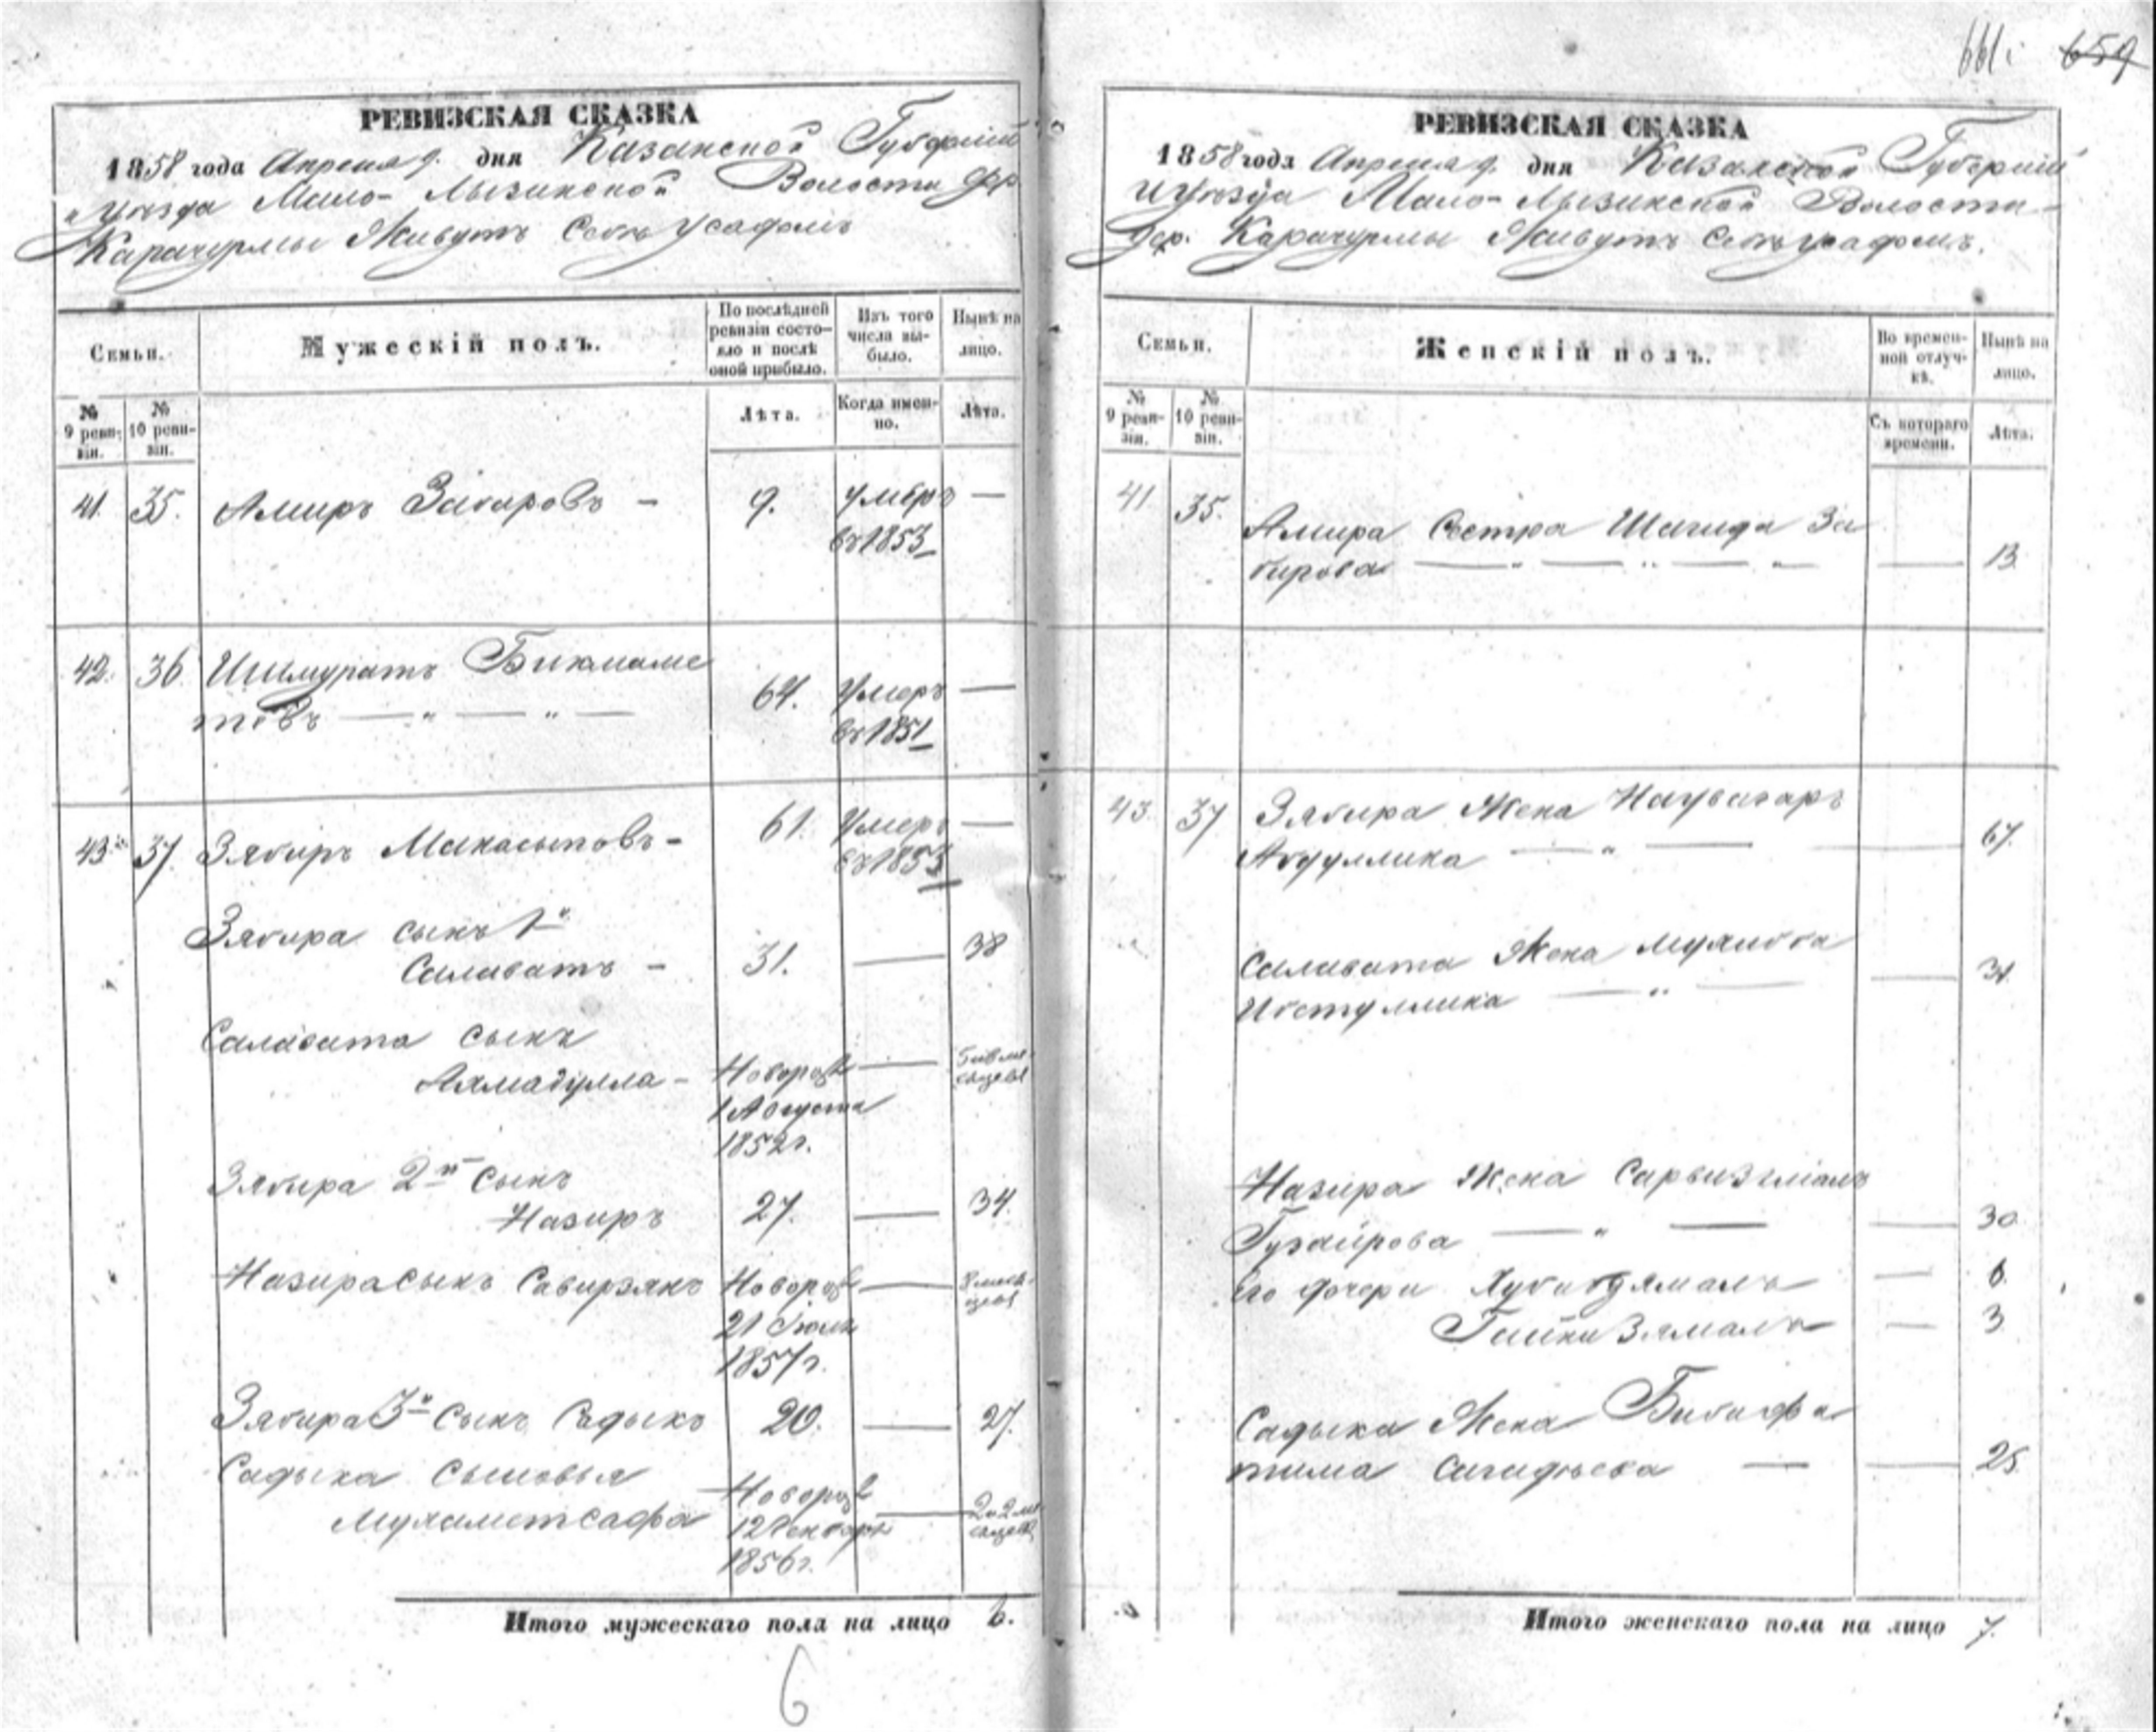 661. 659
РЕВИЗСКАЯ СКАЗКА
1858 года Апреля 9. дня Казанской Губерніи
и Уезда Мало-Лызинской Волости Дер
Карачурмы Живутъ Своъ Усадомъ
Семьи.
Мужескій полъ.
По послѣдней ревизіи состо-
яло и послѣ
оной прибыло.
Изъ того
числа вы-
было.
Нынѣ на
лицо.
№
9 реви-
зіи.
№
10 реви-
зіи.
Лѣта.
Когда имен-
но.
Лѣта.
41. 35. Амиръ Забировъ — 9. умеръ —
въ 1853
42. 36. Ишмуратъ Бикмаме
товъ — " — " — 64. Умеръ —
въ 1851
43. 37. Зябиръ Макасыповъ — 61. Умеръ —
въ 1853
Зябира сынъ 1й
Салаватъ — 31. — 38
Салавата сынъ
Ахмадулла — Новорож —
1 Августа
1852 г.
Зябира 2й сынъ
Назиръ 27. — 34.
Назира сынъ Сабирзянъ Новорож —
21 Іюля
1857 г.
Зябира 3й сынъ Садыкъ 20. — 27.
Садыка сыновья
Мухаметсафа Новорож — 2 и 2 ме
сяцевъ
12 Генваря
1856 г.
Итого мужескаго пола на лицо 6.
6
РЕВИЗСКАЯ СКАЗКА
1858 года Апреля 9. дня Казанской Губерніи
и Уезда Мало-Лызинской Волости
Дер. Карачурмы Живутъ
Семьи.
Женскій полъ.
Во времен-
ной отлуч-
кѣ.
Нынѣ на
лицо.
№
9 реви-
зіи.
№
10 реви-
зіи.
Съ котораго
времени.
Лѣта.
41 35. Амира Сестра Шагида За
бирова — " — " — " — — 13.
43. 37 Зябира Жена Наугагаръ
Абдуллина — " — — 67.
Салавата Жена Мухибба
Ибетуллина — " — —
Назира Жена Сарвизямалъ
Гузаирова — " — — 30
его дочери — 6.
Гайнизямалъ — 3
Садыка Жена Бибифа
тима Сагадеева — — 25.
Итого женскаго пола на лицо 7.